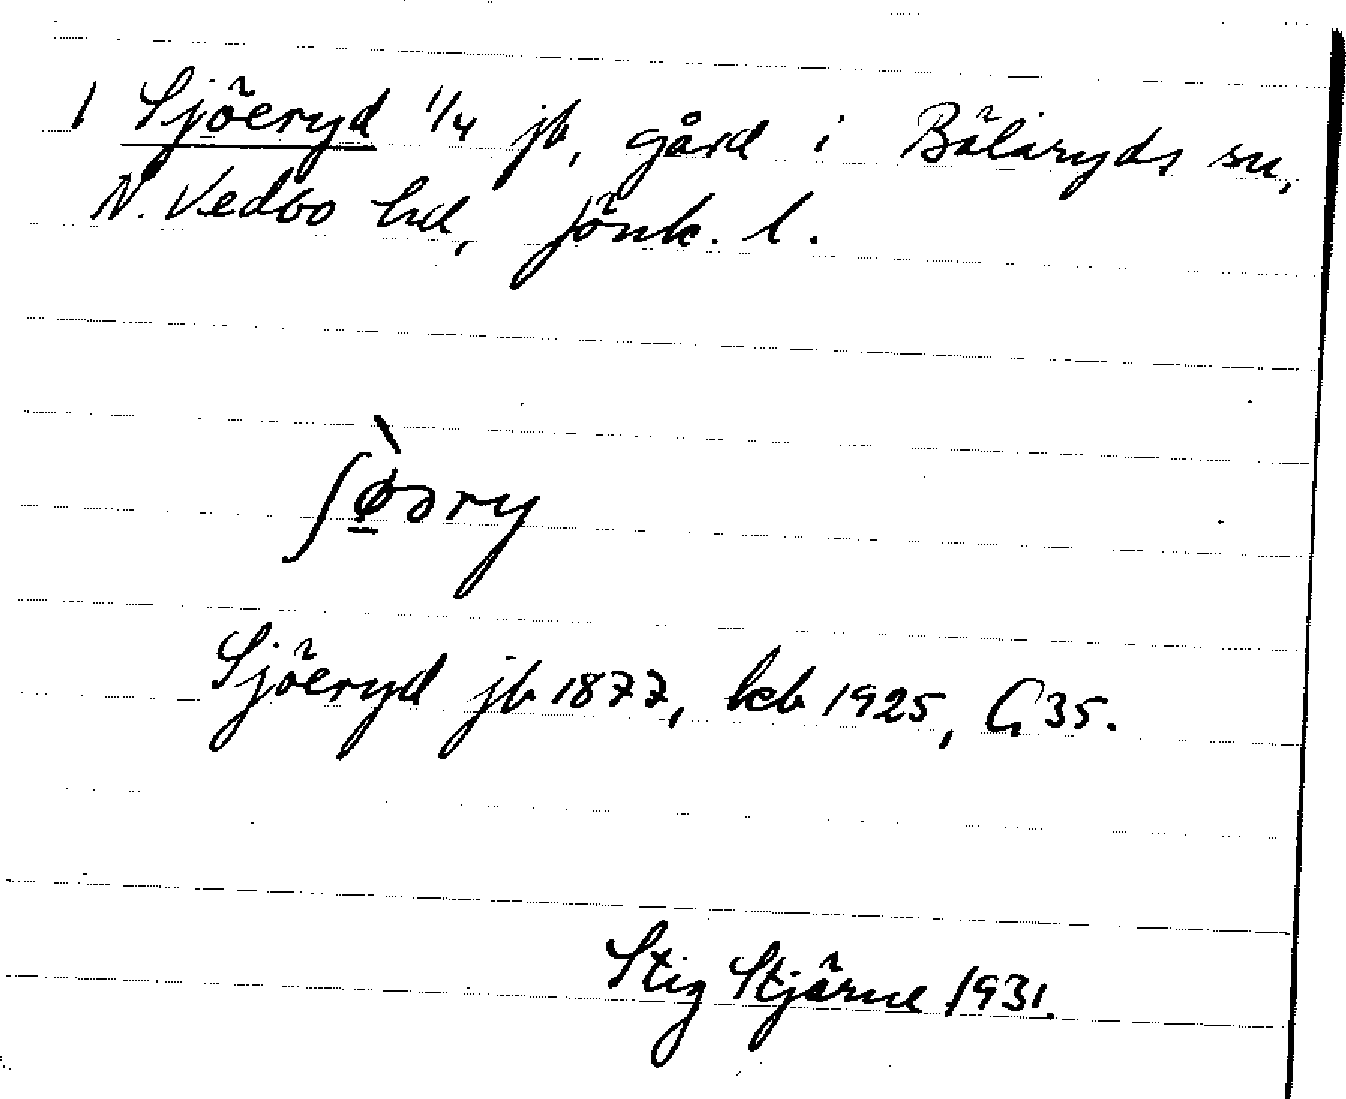 1 Sjöeryd 1/4 jb, gård i Bälaryds sn,
N. Vedbo hd, Jönk. l.
ʃø̠̀əry
Sjöeryd jb 1877, kcb 1925, G 35.
Stig Stjärne 1931.